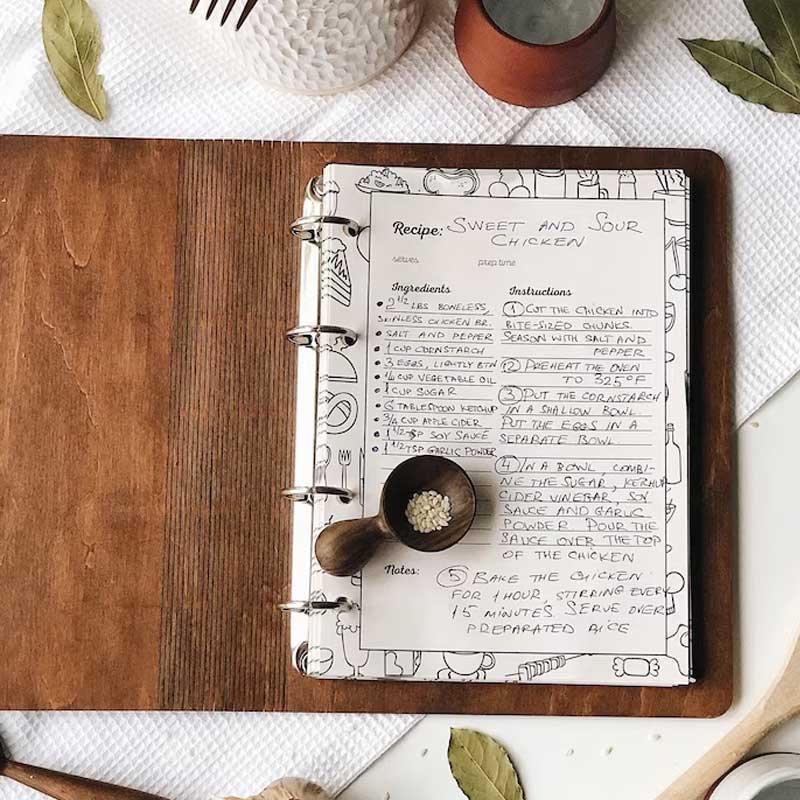 Recipe: SWEET AND SOUR
CHICKEN
serves prep time
Ingredients
• 2 1/2 LBS BONELESS,
SKINLESS CHICKEN BR.
• SALT AND PEPPER
• 1 CUP CORNSTARCH
• 3 EGGS, LIGHTLY BTN
• 1/4 CUP VEGETABLE OIL
• 1 CUP SUGAR
• 6 TABLESPOON KETCHUP
• 3/4 CUP APPLE CIDER
• 1 1/2 TSP SOY SAUCE
• 1 1/2 TSP GARLIC POWDER
Instructions
1 CUT THE CHICKEN INTO
BITE-SIZED CHUNKS.
SEASON WITH SALT AND
PEPPER
2 PREHEAT THE OVEN
TO 325°F
3 PUT THE CORNSTARCH
IN A SHALLOW BOWL.
PUT THE EGGS IN A
SEPARATE BOWL.
4 IN A BOWL, COMBI-
NE THE SUGAR, KETCHUP
CIDER VINEGAR, SOY
SAUCE AND GARLIC
POWDER POUR THE
SAUCE OVER THE TOP
OF THE CHICKEN
Notes: 5 BAKE THE CHICKEN
FOR 1 HOUR, STIRRING EVERY
15 MINUTES SERVE OVER
PREPARATED RICE